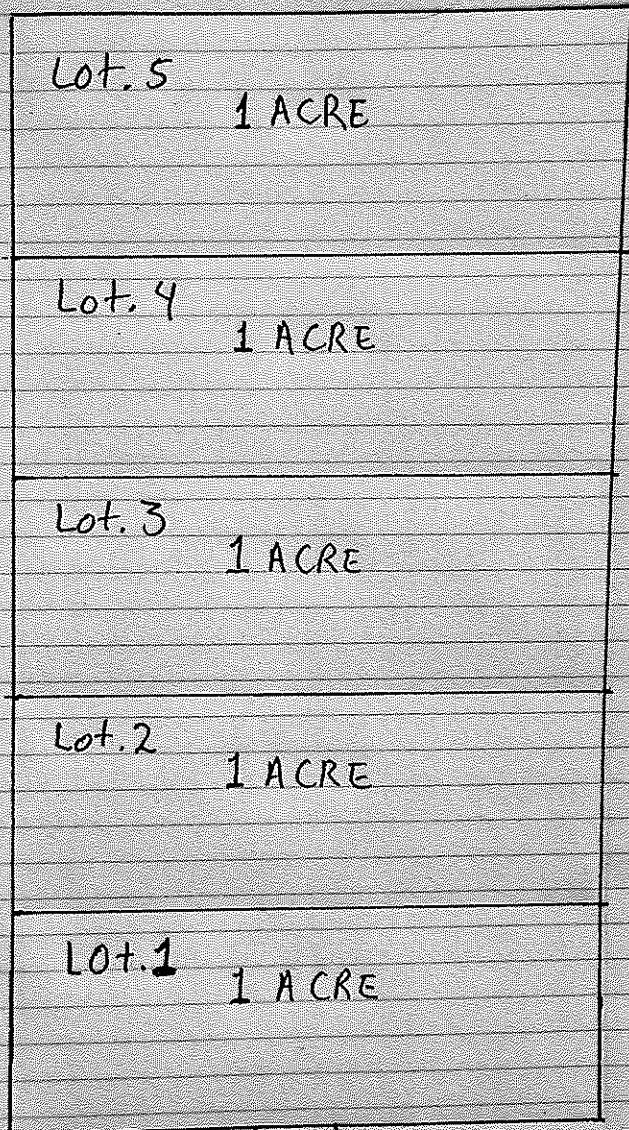 Lot. 5
1 ACRE
Lot. 4
1 ACRE
Lot. 3
1 ACRE
Lot. 2
1 ACRE
Lot. 1
1 ACRE